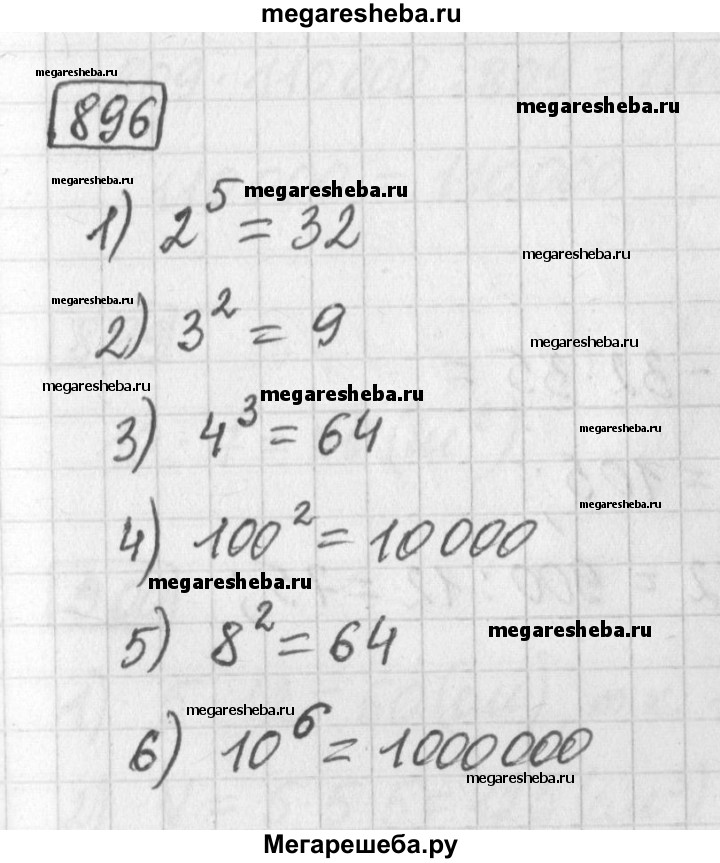 megaresheba.ru
megaresheba.ru
896
megaresheba.ru
megaresheba.ru
megaresheba.ru
1) 2^5 = 32
megaresheba.ru
megaresheba.ru
2) 3^2 = 9
megaresheba.ru
megaresheba.ru
megaresheba.ru
3) 4^3 = 64
megaresheba.ru
megaresheba.ru
4) 100^2 = 10 000
megaresheba.ru
5) 8^2 = 64
megaresheba.ru
megaresheba.ru
6) 10^6 = 1000 000
megaresheba.ru
Мегарешеба.ру